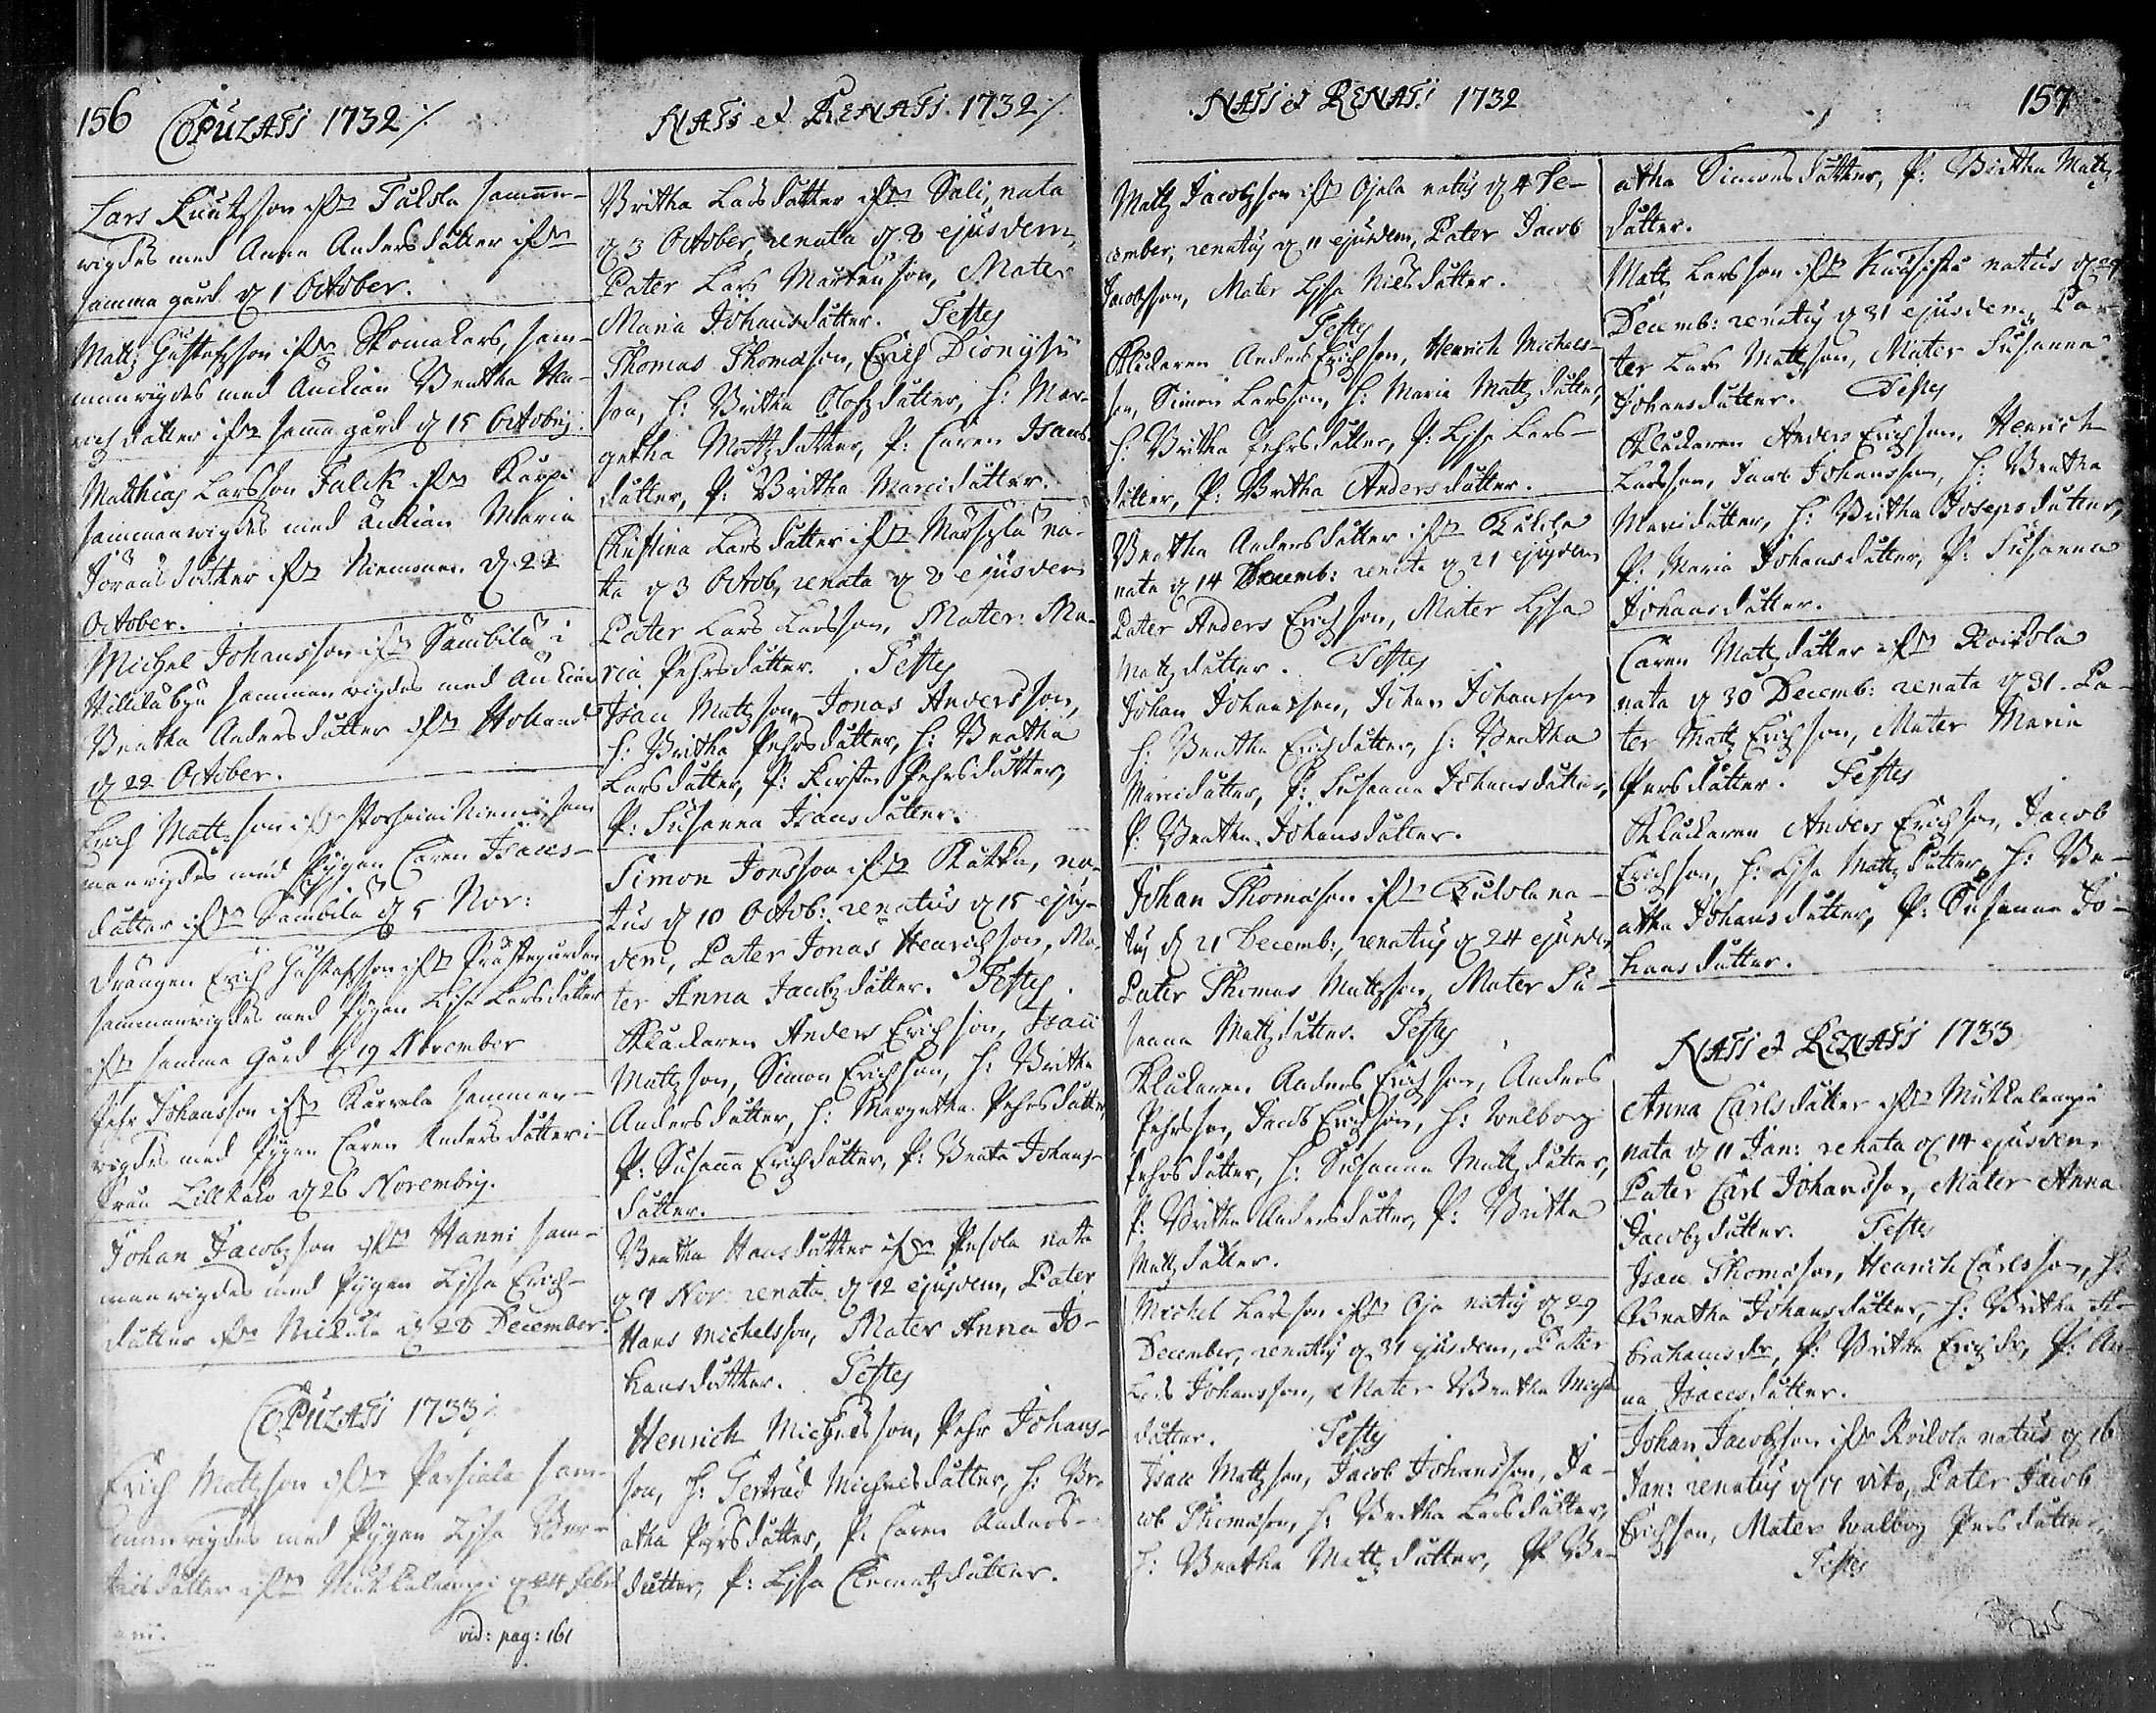 156 COPULATI 1732 ./.
Lars Knutzson ifrån Tulola samman-
wigdes med Anna Andersdatter ifrån
samma gård d 1 October.
Mattz Gustafzson ifrån Skomakars, sam-
manwigdes med Änckian Beatha Hen-
richdatter ifrån sama gård d 15 Octobris.
Matthias Larsson Falck ifrån Karpi
sammanwigdes med änkian Maria
Jöransdatter ifrån Niemonen d 22
October.
Michel Johansson ifrån Sambila i
sammanwigdes med Änckian
Beatha Andersdatter ifrån
d 22 October.
Erich Mattzson ifrån Niemi sam
manwigdes med Pygan Caren Isacs-
datter ifrån Sambila d 5 Nov:
Drängen Erich Gustafsson ifrån Prästegården
sammanwigdes med Pygan Lisa Larsdatter
ifrån samma Gård d 19 November
Pehr Johansson ifrån Karvela samman-
wigdes med Pygan Caren Andersdatter i-
från Lillkalo d 26 Novembris.
Johan Jacobzson ifrån Hanni sam-
manwigdes med Pygan Lisa Erich-
datter ifrån Nickula d 28 December.
COPULATI 1733 ./.
Erich Mattzson ifrån Parsiala sam-
manwigdes med Pygan Lisa Ber-
datter ifrån Mukkalempi d 24 Febru
arii.
vid: pag: 161
NATI et RENATI 1732 ./.
Britha Larsdatter ifrån Sali, nata
d 3 October, renata d 8 ejusdem,
Pater Lars Martensson, Mater
Maria Johansdatter. Testes
Thomas Thomasson, Erich Dionysii
son, H: Britha Olofzdatter, H: Mar-
getha Mattzdatter, P: Caren Isacs
datter, P: Britha Marcidatter.
Christina Larsdatter ifrån na-
ta d 3 Octob, renata d 8 ejusdem
Pater Lars Larsson, Mater: Ma-
ria Pehrsdatter. Testes
Isac Mattzson, Jonas Andersson,
H: Britha Pehrsdatter, H: Beatha
Larsdatter, P: Kirstin Pehrsdatter,
P: Susanna Isacsdatter.
Simon Jonsson ifrån Kukka, na-
tus d 10 Octob: renatus d 15 ejus-
dem, Pater Jonas Henrichson, Ma-
ter Anna Jacobzdatter. Testes.
Klackaren Anders Erichson, Isac
Mattzson, Simon Erichson, H: Britha
Andersdatter, H: Margetha Pehrsdatter,
P: Susana Erichdatter, P: Beata Johans-
datter.
Beatha Hansdatter ifrån Pesola nata
d 7 Nov: renata d 12 ejusdem, Pater
Hans Michelsson, Mater Anna Jo-
hansdatter. Testes
Henrich Michelsson, Pehr Johans-
son, H: Gertrud Michelsdatter, H: Be-
atha Pehrsdatter, P: Caren Anders-
datter, P: Lisa Clemetzdatter.
NATI et RENATI 1732
Mattz Jacobzson ifrån Ojala natus d 4 De-
cember, renatus d 11 ejusdem, Pater Jacob
Jacobzson, Mater Lisa Nielsdatter.
Testes
Klackaren Anders Erichson, Henrich Michels-
son, Simon Larsson, H: Maria Mattzdatter,
H: Britha Pehrsdatter, P: Lisa Lars-
datter, P: Britha Andersdatter.
Beatha Andersdatter ifrån Tulola
nata d 14 Decemb: renata d 21 ejusdem
Pater Anders Erichson, Mater Lisa
Mattzdatter. Testes
Johan Johansson, Johan Johansson
H: Beatha Erichdatter, H: Beatha
Marcidatter, P: Susanna Johansdatter,
P: Beatha Johansdatter.
Johan Thomasson ifrån Tulola na-
tus d 21 Decemb:, renatus d 24 ejusdem
Pater Thomas Mattzson, Mater Su-
sanna Mattzdatter. Testes
Klackaren Anders Erichson, Anders
Pehrsson, Jacob Erichson, H: Walborg
Pehrsdatter, H: Susanna Mattzdatter,
P: Britha Andersdatter, P: Britha
Mattzdatter.
Michel Larsson ifrån Oja natus d 29
December, renatus d 31 ejusdem, Pater
Lars Johansson, Mater Beatha Michels
datter. Testes
Isac Mattzson, Jacob Johansson, Ja-
cob Thomasson, H: Beatha Larsdatter,
H: Beatha Mattzdatter, P: Be-
157
atha Simonsdatter, P: Britha Mattz
datter.
Mattz Larsson ifrån natus d 29
Decemb: renatus d 31 ejusdem, Pa-
ter Lars Mattzson, Mater Susanna
Johansdatter. Testes
Klackaren Anders Erichson, Henrich
Larsson, Jacob Johansson, H: Beatha
Marcidatter, H: Britha Josepsdatter,
P: Maria Johansdatter, P: Susanna
Johansdatter.
Caren Mattzdatter ifrån Koivola
nata d 30 Decemb: renata d 31. Pa-
ter Mattz Erichson, Mater Maria
Persdatter. Testes
Klackaren Anders Erichson, Jacob
Erichson, H: Lisa Mattzdatter, H: Be-
atha Johansdatter, P: Susanna Jo-
hansdatter.
NATI et RENATI 1733
Anna Carlsdatter ifrån Mukkalempi
nata d 11 Jan: renata d 14 ejusdem
Pater Carl Johansson, Mater Anna
Jacobzdatter. Testes
Isac Thomasson, Henrich Carlsson, H:
Beatha Johansdatter, H: Britha A-
brahamsdr, P: Britha Erichdr, P: An-
na Isacsdatter.
Johan Jacobzson ifrån Koivola natus d 16
Jan: renatus d 17 dito, Pater Jacob
Erichson, Mater Walborg Persdatter,
Testes